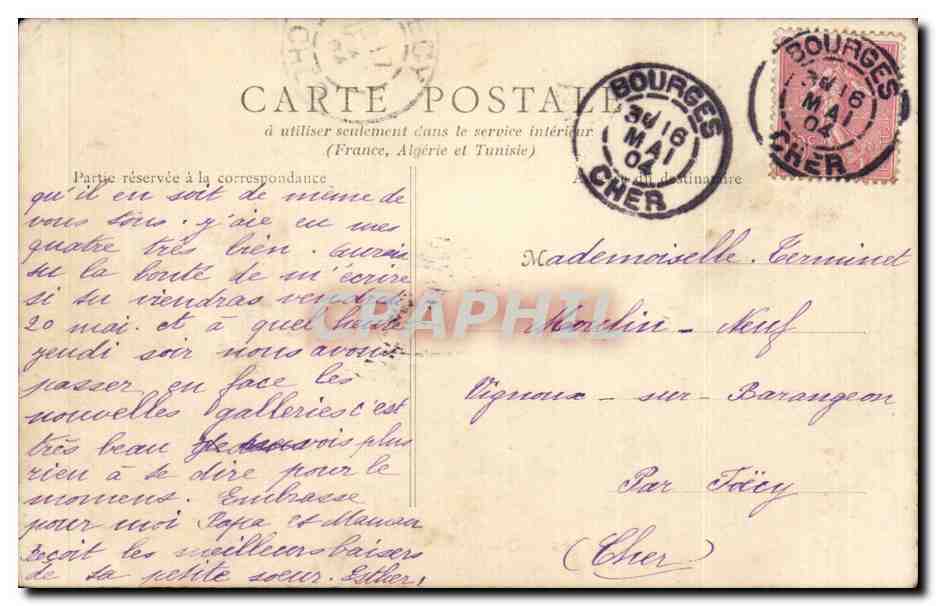 CARTE POSTALE
à utiliser seulement dans le service intérieur
(France, Algérie et Tunisie)
BOURGES
16
MAI
04
CHER
BOURGES
16
MAI
04
CHER
Partie réservée à la correspondance
du destinataire
qu'il en soit de même de
vous tous. j'aie eu mes
quatre très bien. aurais
tu la bonté de m'écrire
si tu viendras vendredi
20 mai. et à quel heure
jeudi soir nous avons
passer en face les
nouvelles galleries c'est
très beau vois plus
rien à te dire pour le
momens. Embrasse
pour moi Papa et Maman
reçoit les meilleurs baisers
de ta petite soeur. Esther!
Mademoiselle Terminet
Moulin-Neuf
Vignoux-sur-Barangeon
Par Foëcy
(Cher)
CPAPHIL